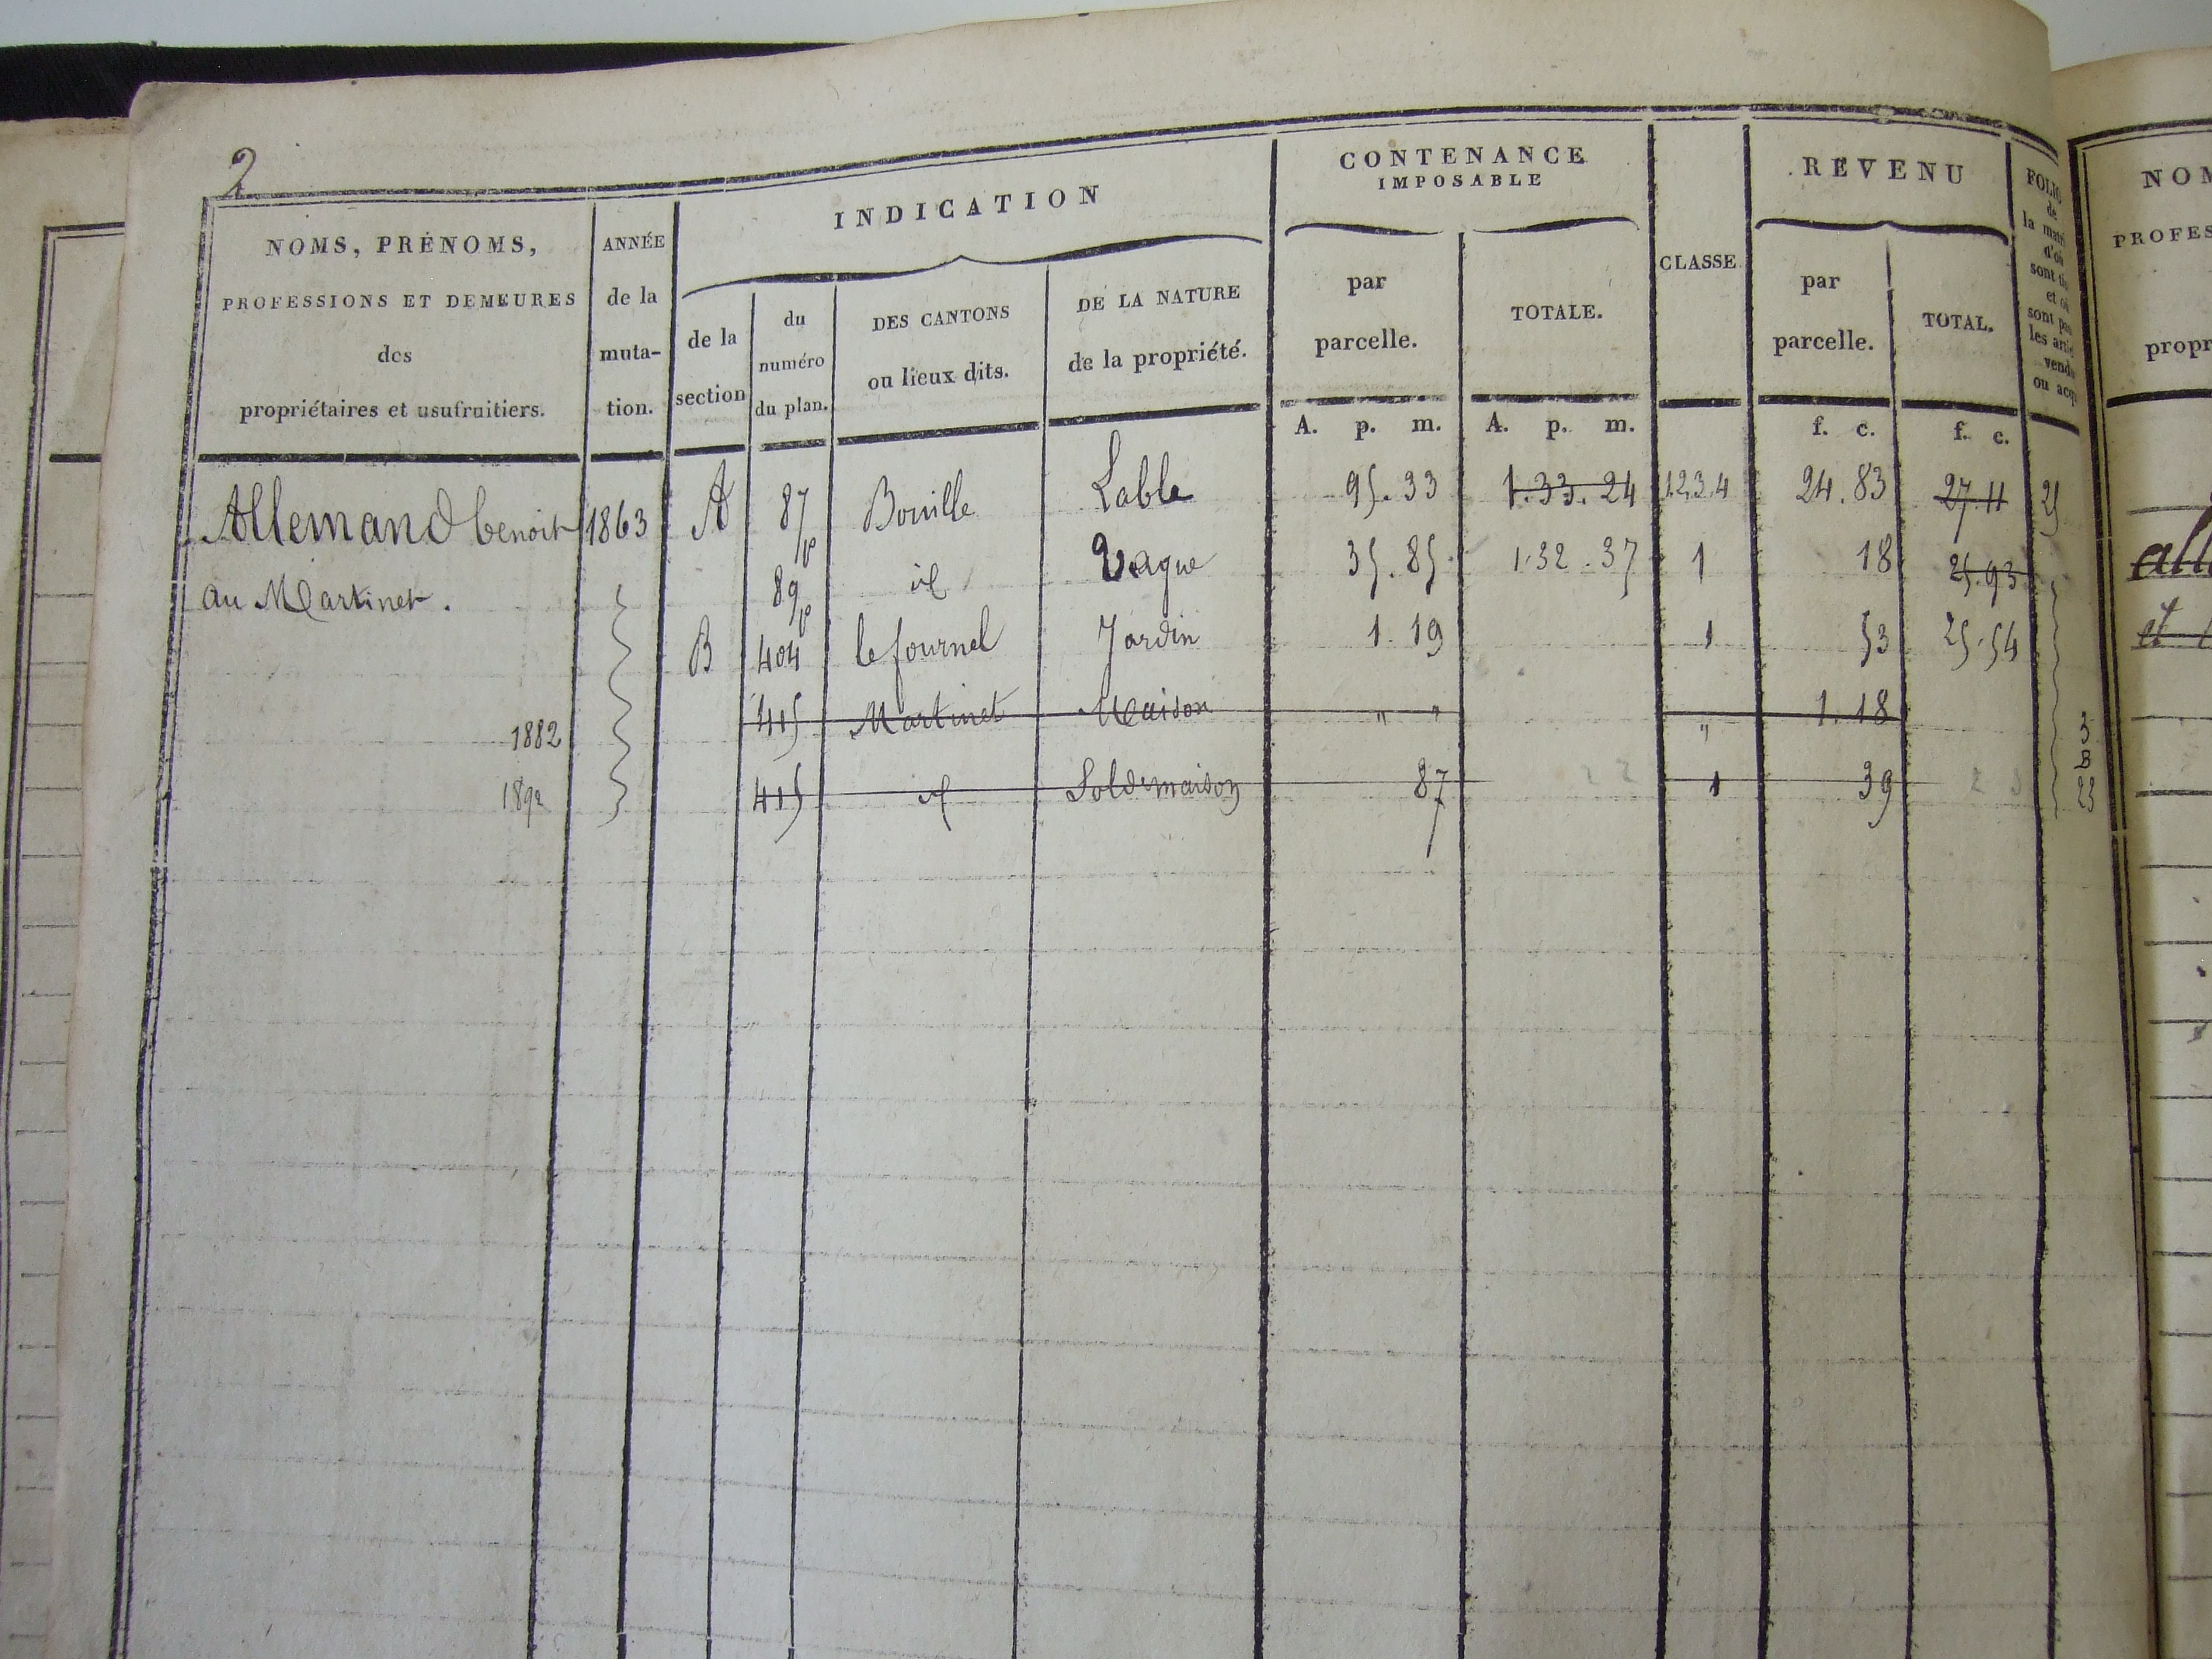 2
NOMS, PRÉNOMS,
PROFESSIONS ET DEMEURES
des
propriétaires et usufruitiers.
ANNÉE
de la
muta-
tion.
INDICATION
de la
section
du
numéro
du plan.
DES CANTONS
ou lieux dits.
DE LA NATURE
de la propriété.
CONTENANCE
IMPOSABLE
par
parcelle.
TOTALE.
CLASSE
REVENU
par
parcelle.
TOTAL.
FOLIO
de
la
d'où
sont
et où
sont
les
ou
A. p. m. A. p. m. f. c. f. c.
Allemand benoit 1863 A 87 p Bouille Lable 95.33 1.33.24 1234 24.83 27.11 25
au Martinet. 89 p id Vague 35.85 1.32.37 1 18 25.93
B 404 le fournel Jardin 1.19 1 53 25.54
1882 415 Martinet Maison " " " 1.18 3
1892 415 id Sol de maison 87 1 39 23
NOM
PROFES
propr
all
et